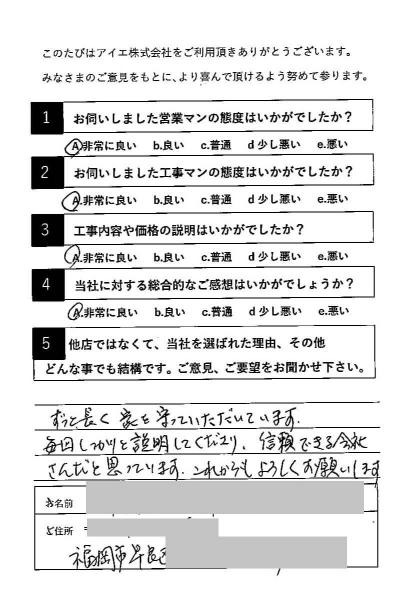 このたびはアイエ株式会社をご利用頂きありがとうございます。
みなさまのご意見をもとに、より喜んで頂けるよう努めて参ります。
1 お伺いしました営業マンの態度はいかがでしたか？
A.非常に良い b.良い c.普通 d 少し悪い e.悪い
2 お伺いしました工事マンの態度はいかがでしたか？
A.非常に良い b.良い c.普通 d 少し悪い e.悪い
3 工事内容や価格の説明はいかがでしたか？
A.非常に良い b.良い c.普通 d 少し悪い e.悪い
4 当社に対する総合的なご感想はいかがでしょうか？
A.非常に良い b.良い c.普通 d 少し悪い e.悪い
5 他店ではなくて、当社を選ばれた理由、その他
どんな事でも結構です。ご意見、ご要望をお聞かせ下さい。
ずっと長く 家を守っていただいています.
毎回しっかりと説明してくださり、信頼できる会社
さんだと思っています. これからもよろしくお願いします
お名前
ご住所 〒
福岡市早良区